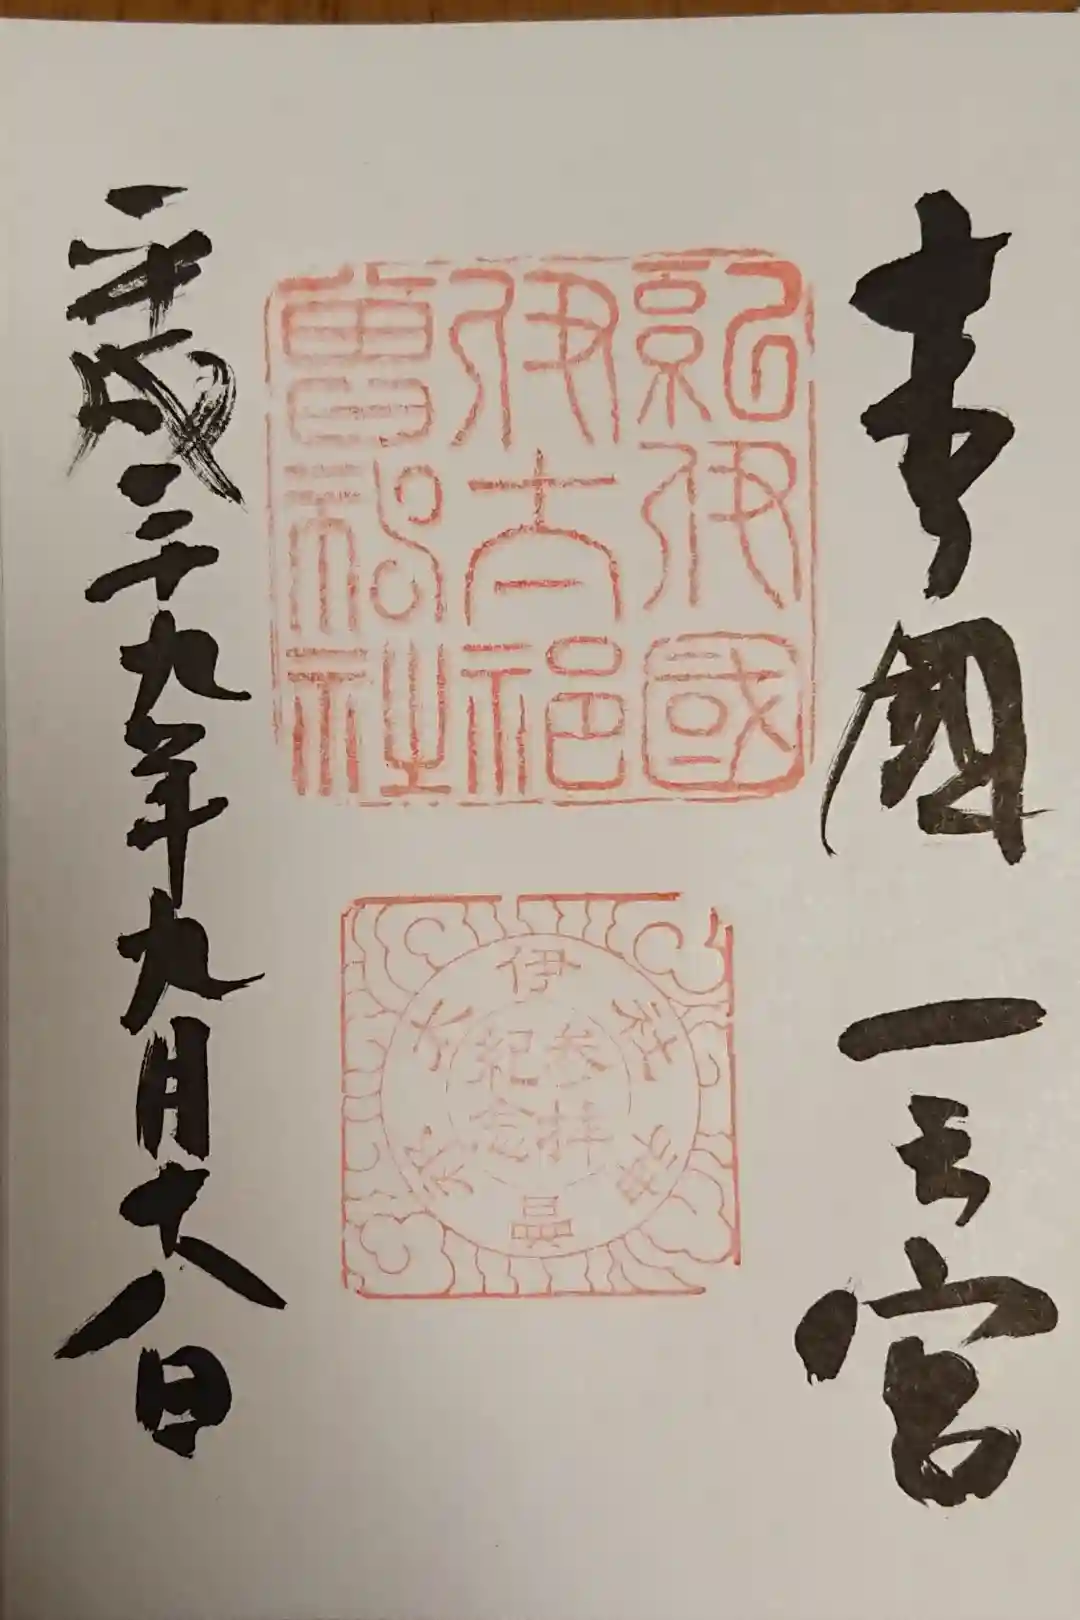 國一之宮
紀伊國
伊太祁曾
神社
伊太祁曽神社
参拝
紀念
平成二十九年九月十八日